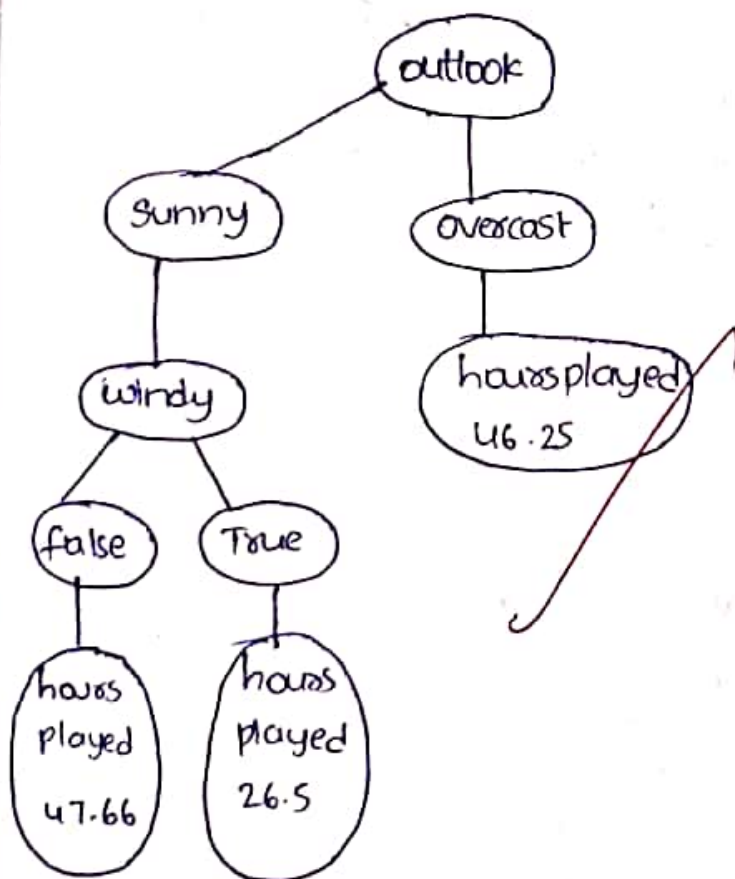 outlook
sunny
overcast
windy
hours played
46.25
false
True
hours
played
47.66
hours
played
26.5